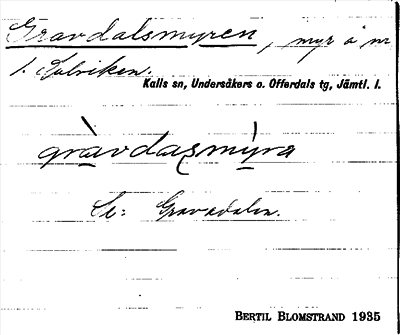 Gravdalsmyren, myr å nr
1. Kolviken.
Kalls sn, Undersåkers o. Offerdals tg, Jämtl. l.
gràvdaʟsmýra
Se: Gravadalen.
BERTIL BLOMSTRAND 1935